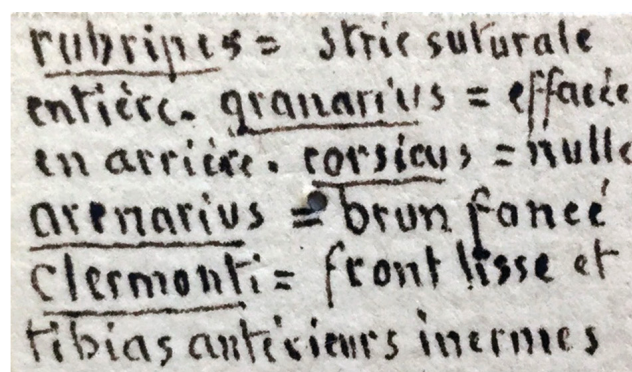 rubripes = strie suturale
entière. granarius = effacée
en arrière. corsicus = nulle
arenarius = brun foncé
clermonti = front lisse et
tibias antérieurs inermes